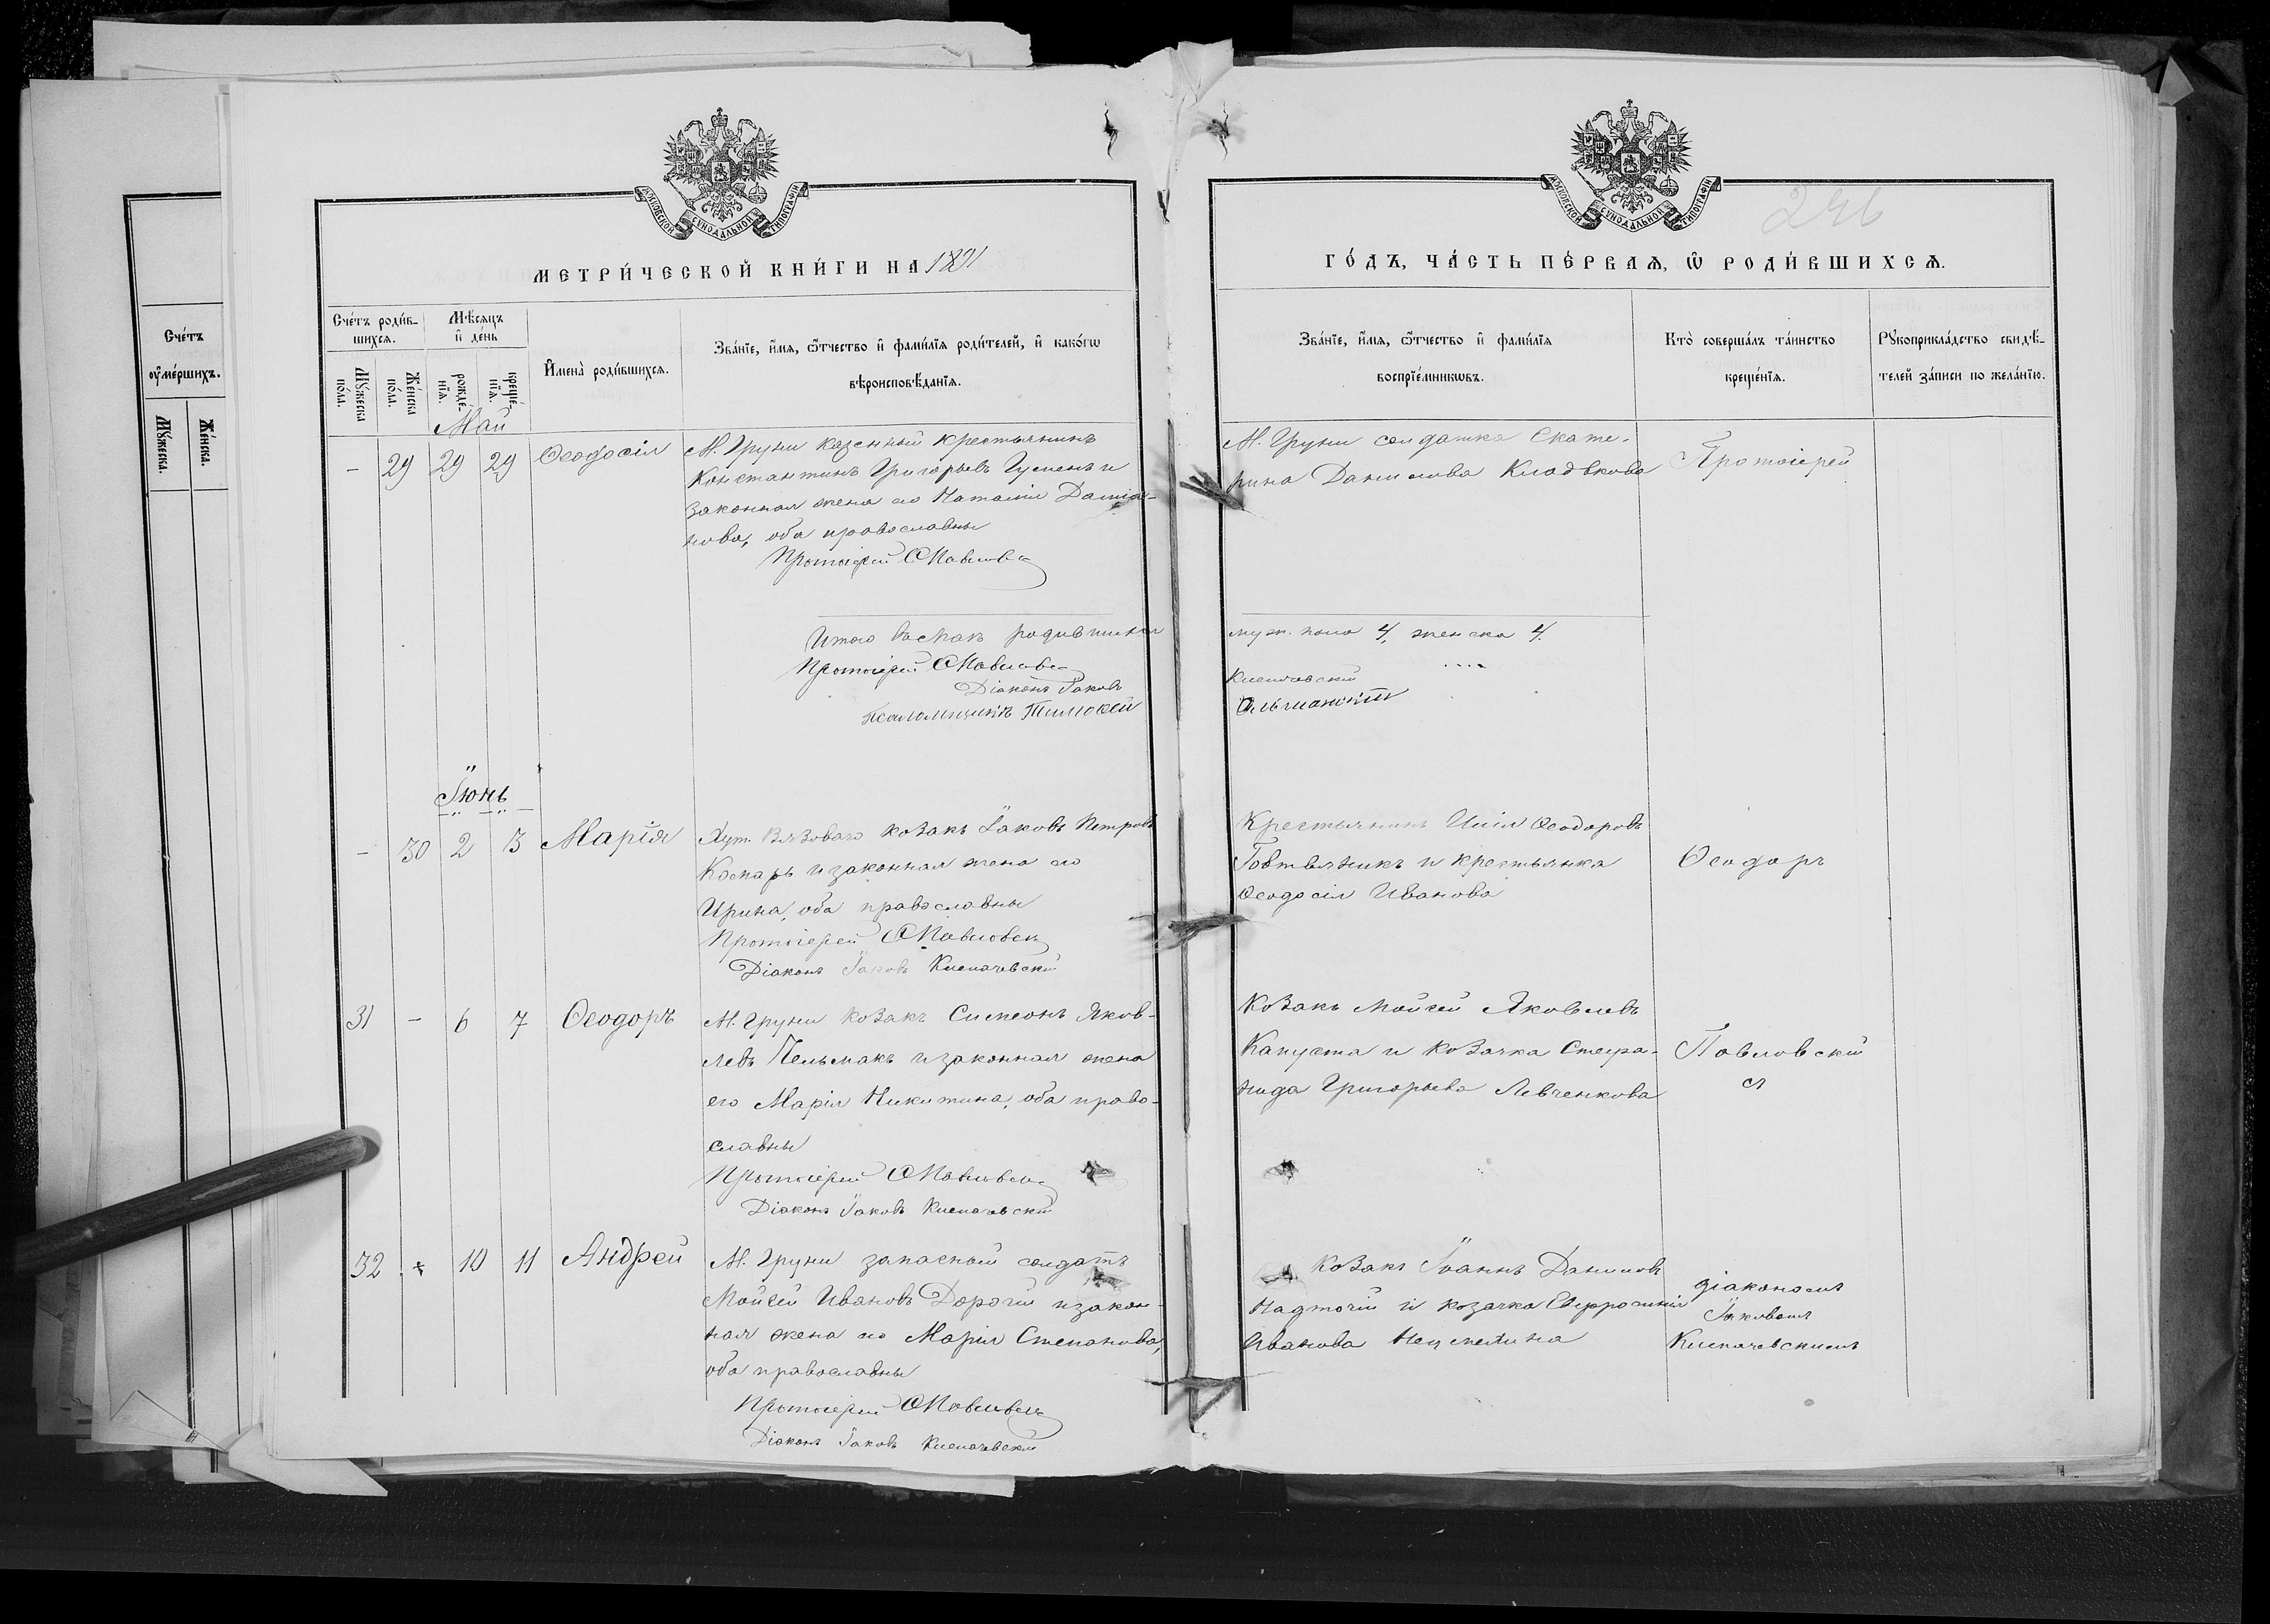 МОСКОВСКОЙ СУНОДАЛЬНОЙ ТИПОГРАФІИ
МЕТРИ́ЧЕСКОЙ КНИ́ГИ НА 1891
Сче́тъ роди́в-
шихсѧ.
Мѣ́сѧцъ
и҆ де́нь
Мꙋ́жеска
по́ла.
Же́нска
по́ла.
рожде́-
нїѧ.
креще́-
нїѧ.
И҆мена̀ роди́вшихсѧ.
Зва́нїе, и҆́мѧ, ѻ҆́тчество и҆ фами́лїѧ роди́телей, и҆ како́гѡ
вѣроисповѣ́данїѧ.
Май
- 29 29 29 Ѳеодосія
М. Груни казенный крестьянинъ
Константинъ Григорьевъ Гуменъ и
законная жена его Наталія Даміа-
нова, оба православны
Протоіерей Ѳ Павловск
Итого въ Маѣ родившихся
Протоіерей Ѳ Павловск
Діаконъ Іаковъ
Псаломщикъ Тимоѳей
Іюнь
- 30 2 3 Марія
Хут. Вязоваго козакъ Іаковъ Петровъ
Коспарь и законная жена его
Ирина, оба православны
Протоіерей Ѳ Павловск
Діаконъ Іаковъ Кисначевскій
31 - 6 7 Ѳеодоръ
М. Груни козакъ Симеонъ Яков-
левъ Пельмакъ и законная жена
его Марія Никитина, оба право-
славны
Протоіерей Ѳ Павловск
Діаконъ Іаковъ Кисначевскій
32 - 10 11 Андрей
М. Груни запасный солдатъ
Мойсей Ивановъ Дорогій и закон-
ная жена его Марія Степанова,
оба православны
Протоіерей Ѳ Павловск
Діаконъ Іаковъ Кисначевскій
246
МОСКОВСКОЙ СУНОДАЛЬНОЙ ТИПОГРАФІИ
ГО́ДЪ, ЧА́СТЬ ПЕ́РВАѦ, Ѡ҆ РОДИ́ВШИХСѦ.
Зва́нїе, и҆́мѧ, ѻ҆́тчество и҆ фами́лїѧ
воспрїе́мникѡвъ.
Кто̀ соверша́лъ та́инство
креще́нїѧ.
Рꙋкоприкла́дство свидѣ́-
телей за́писи по жела́нїю.
М. Груни солдатка Екате-
рина Данилова Кладькова
Протоіерей
муж. пола 4, женска 4.
Кисначевскій
Ольшанскій
Крестьянинъ Илія Ѳеодоровъ
Говтвяникъ и крестьянка
Ѳеодосія Иванова
Ѳеодоръ
Козакъ Мойсей Яковлевъ
Капуста и козачка Стефа-
нида Григорьева Левченкова
Павловскій
козакъ Іоаннъ Даниловъ
Надточій и козачка Евфросинія
Иванова
діакономъ
Іаковомъ
Кисначевскимъ
Сче́тъ
ᲂу҆ме́ршихъ.
Мꙋ́жеска.
Же́нска.